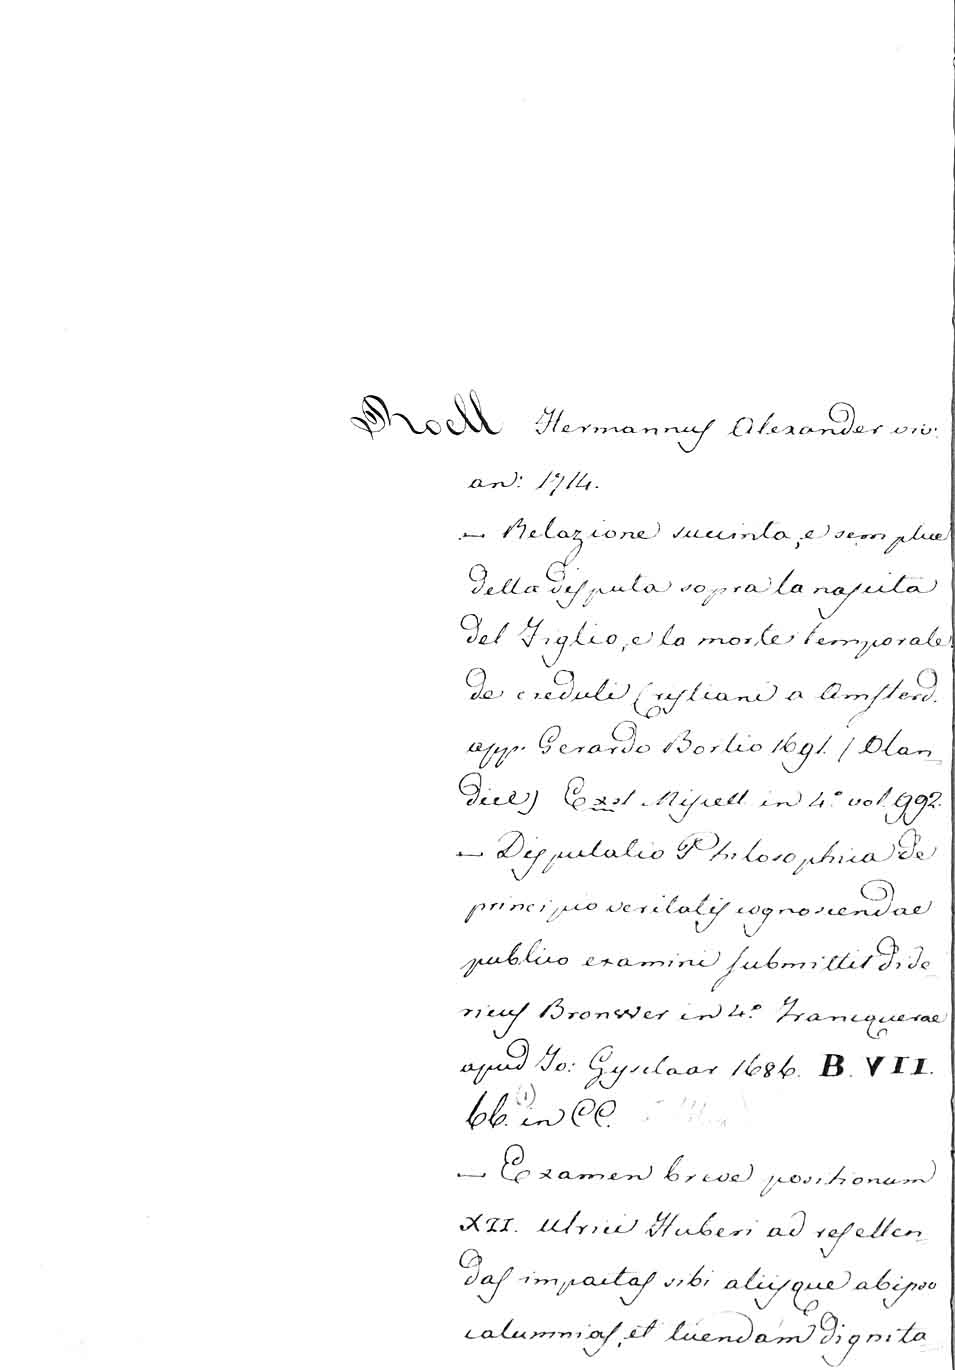 Roell Hermannus Alexander viv:
an: 1714.
— Relazione succinta, e semplice
della disputa sopra la nascita
del Figlio, e la morte temporale
de creduli Cristiani a Amsterd.
app. Gerardo Borstio 1691. (Olan-
dice) Exst Miscell. in 4.° vol. 992.
— Disputatio Philosophica de
principio veritatis cognoscendae
publico examini submittit Dide
ricus Bronwer in 4.° Francquerae
apud Jo: Gyselaar 1686. B. VII.
66. (1) in CC.
— Examen breve positionum
XII. Ulrici Huberi ad refellen-
das impactas sibi aliisque ab ipso
calumnias, et tuendam dignita